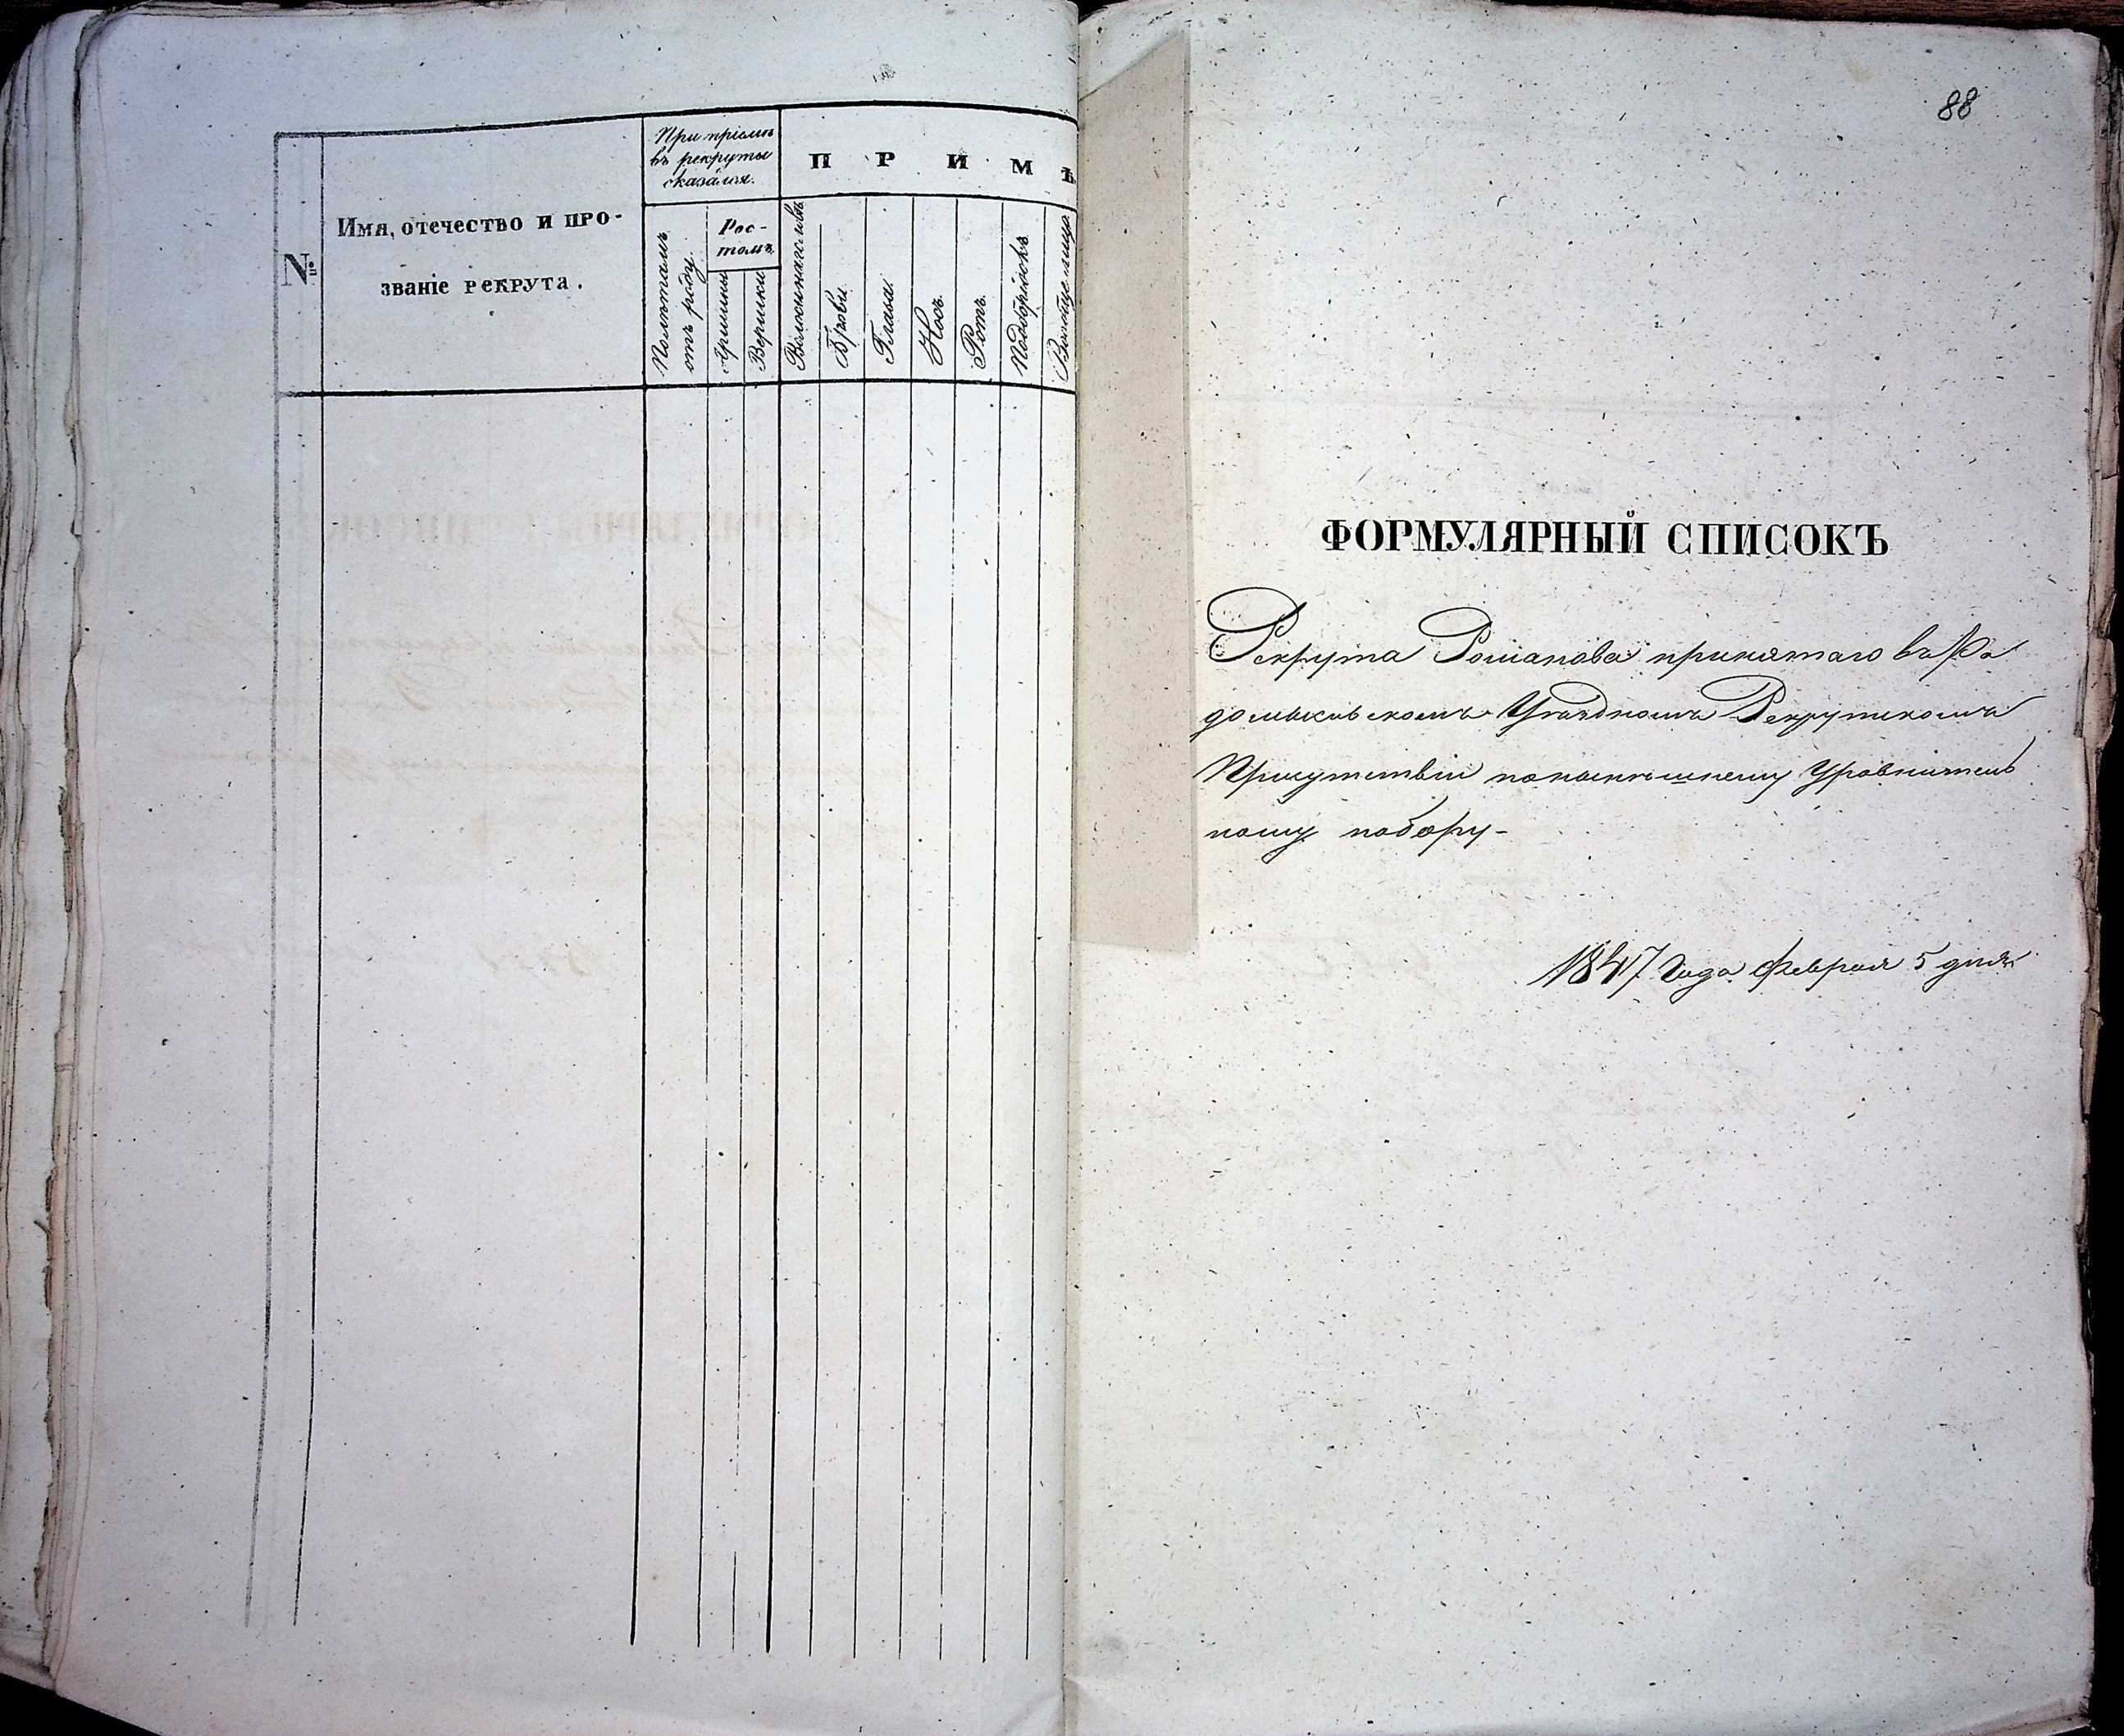 №
Имя, отечество и про-
званіе рекрута.
При пріемѣ
въ рекруты
сказался.
Полѣтамъ
отъ роду.
Рос-
томъ.
Аршины
Вершки
П Р И М Ѣ
Волосы на головѣ
Брови
Глаза.
Носъ.
Ротъ.
Подбородокъ
Вообще лицо
88
ФОРМУЛЯРНЫЙ СПИСОКЪ
Рекрута Романова принятаго въ Ра
домысльскомъ Уѣздномъ Рекрутскомъ
Присутствіи по нынѣшнему Уравнитель
ному набору-
1847 Года Февраля 5 дня